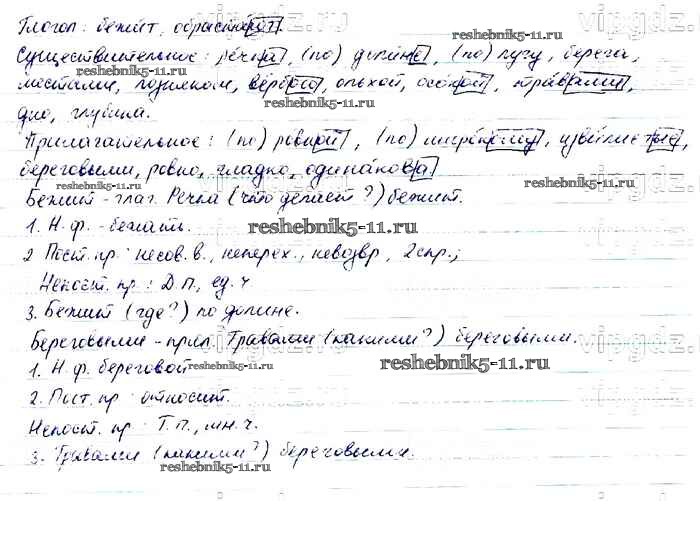 Глагол: бежит, обрастают.
Существительные: речка, (по) долине, (по) лугу, берега,
мостами, лозняком, вербою, ольхой, осокой, травами,
дно, глубина.
Прилагательные: (по) ровной, (по) широкому, извилистые,
береговыми, ровно, гладко, одинакова
Бежит - глаг. Речка (что делает?) бежит.
1. Н.ф. - бежать.
2 Пост. пр: несов.в., неперех., невозвр, 2 спр.;
Непост. пр: Д.п., ед.ч
3. Бежит (где?) по долине.
Береговыми - прил. Травами (какими?) береговыми.
1. Н.ф. береговой
2. Пост. пр: относит.
Непост. пр: Т.п., мн.ч.
3. Травами (какими?) береговыми.
reshebnik5-11.ru
reshebnik5-11.ru
reshebnik5-11.ru
reshebnik5-11.ru
reshebnik5-11.ru
reshebnik5-11.ru
reshebnik5-11.ru
reshebnik5-11.ru
reshebnik5-11.ru
vipgdz.ru
vipgdz.ru
vipgdz.ru